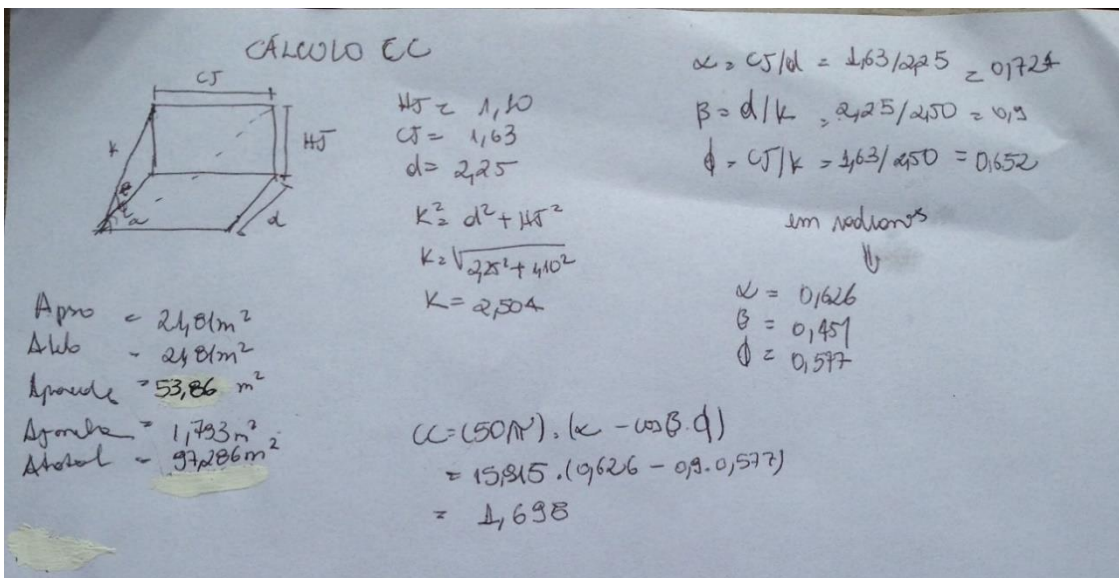 CÁLCULO CC
CJ
HJ
K
d
HJ = 1,10
CJ = 1,63
d = 2,25
K² = d² + HJ²
K = √2,25² + 1,10²
K = 2,504
α = CJ/d = 1,63/2,25 = 0,724
β = d/k = 2,25/2,50 = 0,9
ϕ = CJ/k = 1,63/2,50 = 0,652
em radianos
⇓
α = 0,626
β = 0,451
ϕ = 0,577
= 21,81m²
= 21,81m²
Aparede = 53,86 m²
= 1,793m²
Atotal = 97,286m²
CC = (50/π) . (α - cosβ.ϕ)
= 15,915 . (0,626 - 0,9.0,577)
= 1,698